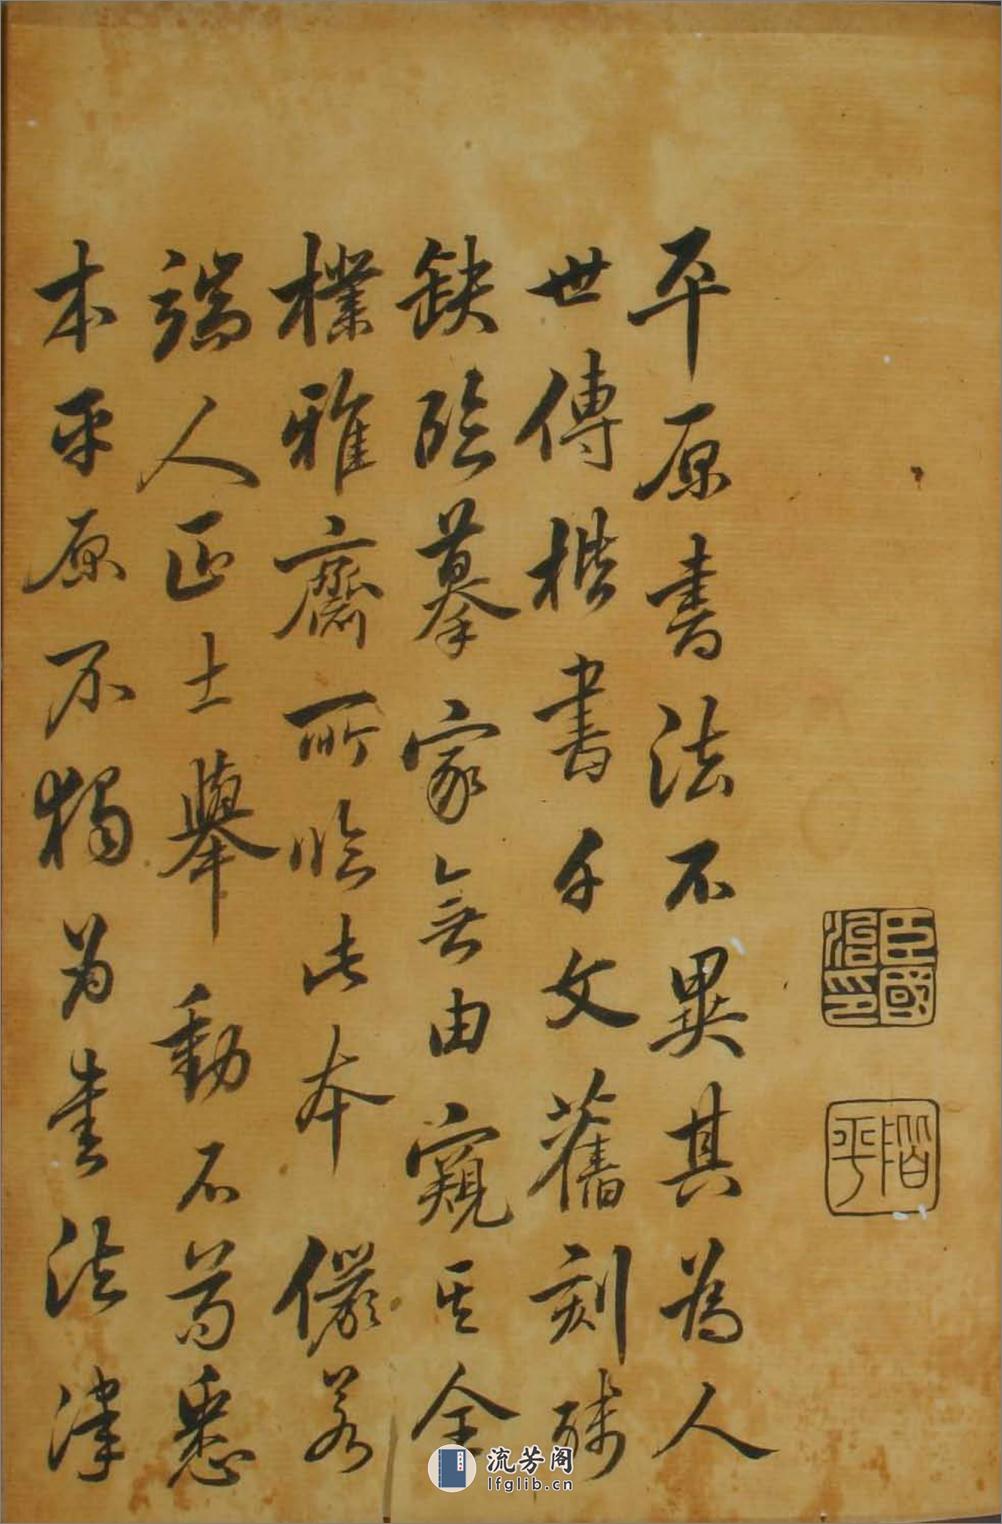 平原書法不異其為人
世傳楷書千文舊刻殘
缺臨摹家無由窺其全
樸雅齋所臨此本儼若
端人正士舉動不苟悉
本平原不獨為書法津
臣國治印
階平
流芳阁
lfglib.cn